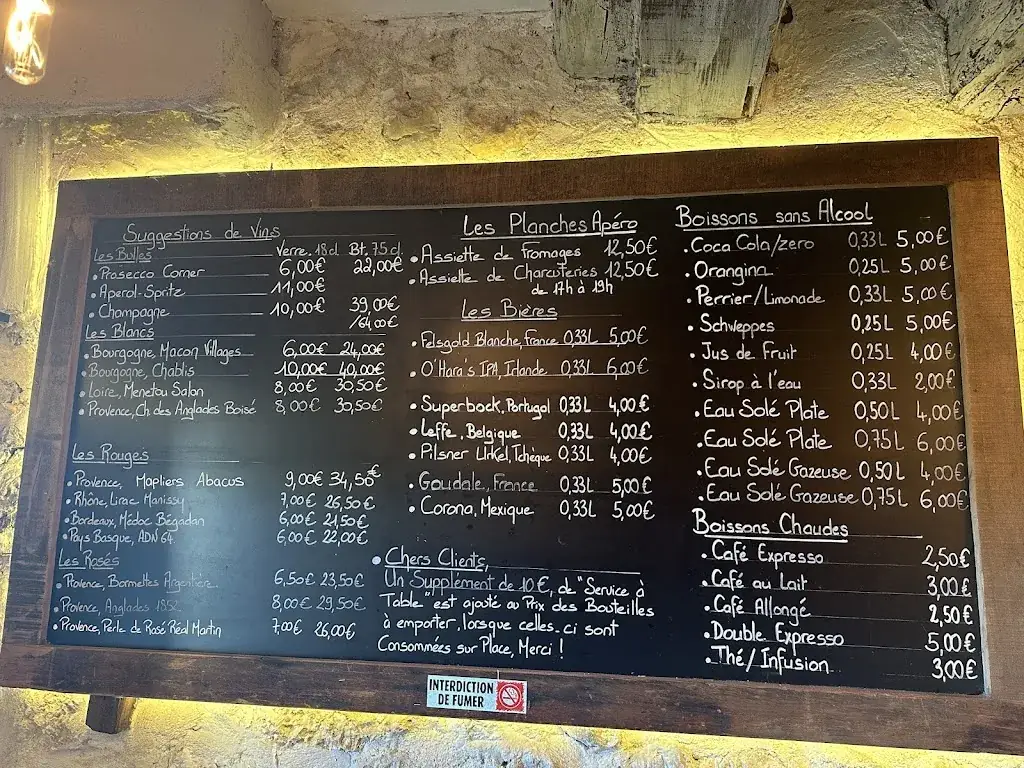 Suggestions de Vins
Les Bulles Verre. 18cl Bt. 75 cl.
• Prosecco Corner 6,00€ 22,00€
• Aperol-Spritz 11,00€
• Champagne 10,00€ 39,00€
/64,00€
Les Blancs
• Bourgogne, Macon Villages 6,00€ 24,00€
• Bourgogne, Chablis 10,00€ 40,00€
• Loire, Menetou Salon 8,00€ 30,50€
• Provence, Ch des Anglades Boisé 8,00€ 30,50€
Les Rouges
• Provence, Mapliers Abacus 9,00€ 34,50€
• Rhône, Lirac Manissy 7,00€ 26,50€
• Bordeaux, Médoc Bégadan 6,00€ 21,50€
• Pays Basque, ADN 64 6,00€ 22,00€
Les Rosés
• Provence, Bormettes Argentière 6,50€ 23,50€
• Provence, Anglades 1852 8,00€ 29,50€
• Provence, Perle de Rosé Réal Martin 7,00€ 26,00€
Les Planches Apéro
• Assiette de fromages 12,50€
• Assiette de Charcuteries 12,50€
de 17h à 19h
Les Bières
• Felsgold Blanche, France 0,33L 5,00€
• O'Hara's IPA, Irlande 0,33L 6,00€
• Superbock, Portugal 0,33L 4,00€
• Leffe, Belgique 0,33L 4,00€
• Pilsner Urkel, Tchèque 0,33L 4,00€
• Goudale, France 0,33L 5,00€
• Corona, Mexique 0,33L 5,00€
• Chers Clients,
Un Supplément de 10€, de "Service à
Table" est ajouté au Prix des Bouteilles
à emporter, lorsque celles-ci sont
Consommées sur Place, Merci !
Boissons sans Alcool
• Coca Cola/zero 0,33L 5,00€
• Orangina 0,25L 5,00€
• Perrier/Limonade 0,33L 5,00€
• Schweppes 0,25L 5,00€
• Jus de Fruit 0,25L 4,00€
• Sirop à l'eau 0,33L 2,00€
• Eau Solé Plate 0,50L 4,00€
• Eau Solé Plate 0,75L 6,00€
• Eau Solé Gazeuse 0,50L 4,00€
• Eau Solé Gazeuse 0,75L 6,00€
Boissons Chaudes
• Café Expresso 2,50€
• Café au Lait 3,00€
• Café Allongé 2,50€
• Double Expresso 5,00€
• Thé/Infusion 3,00€
INTERDICTION
DE FUMER